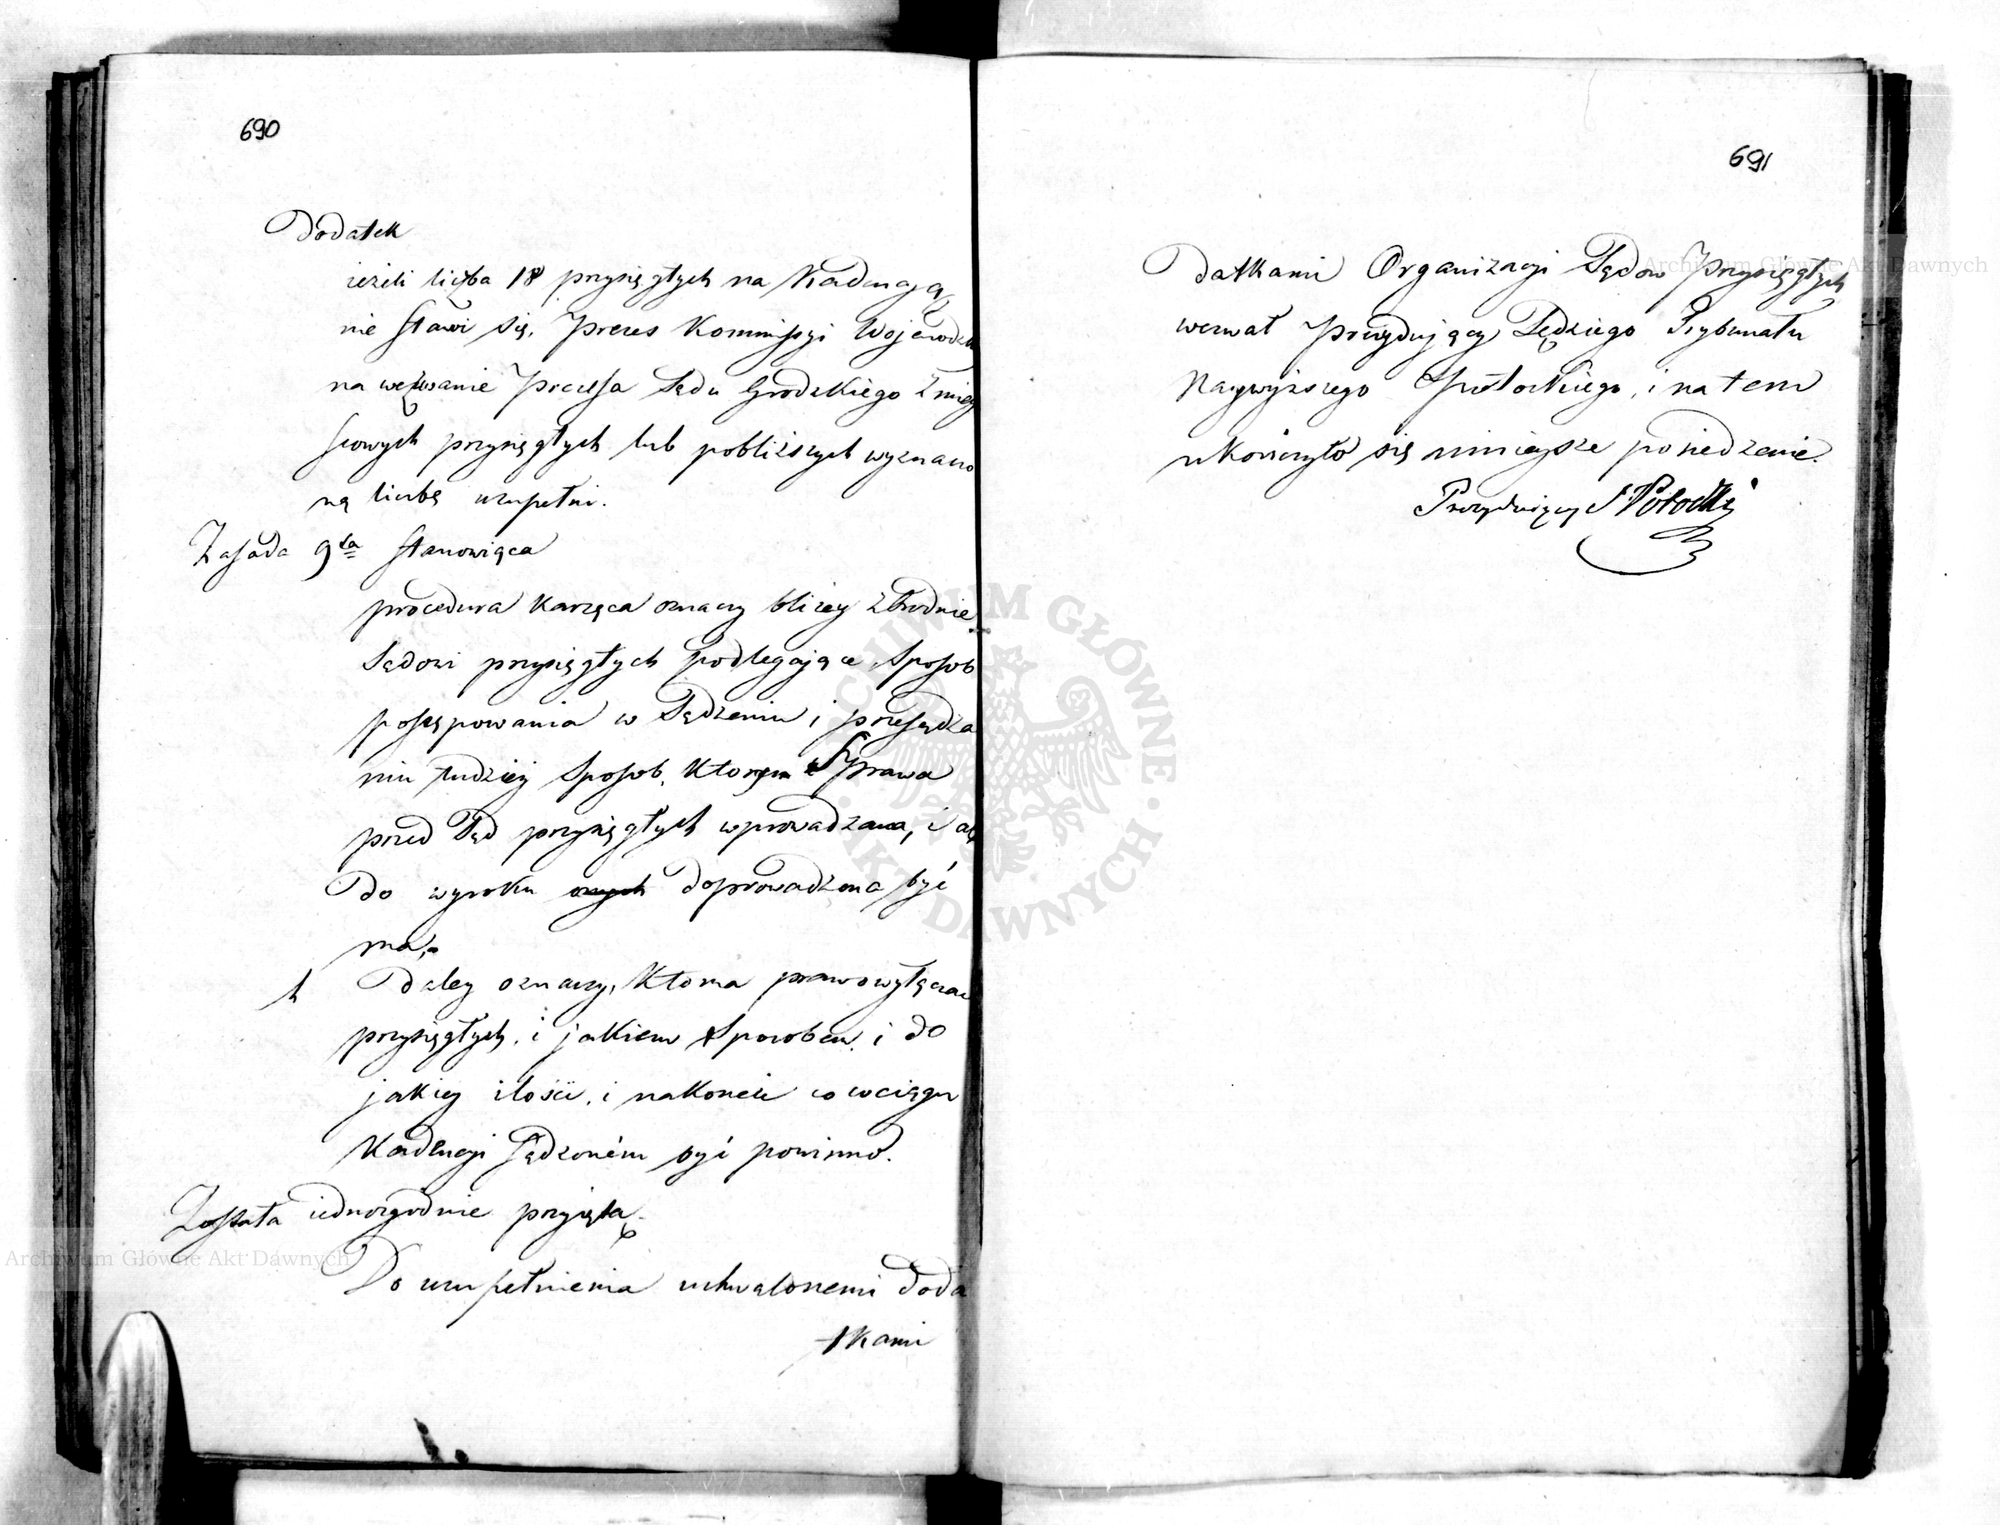 690
Dodatek
ieżeli liczba 18 przysięgłych na Kadencją
nie stawi się, Prezes Kommissyi Wojewodz
na wezwanie Prezesa Sądu Grodzkiego z miey
scowych przysięgłych lub pobliższych wyznaczo
ną liczbę uzupełni.
Zasada 9ta stanowiąca
procedura karząca oznaczy bliżey zbrodnie
Sądowi przysięgłych podlegające, sposob
postępowania w Sądzeniu i przesądza
niu tudzież sposob, którym Sprawa
przed Sąd przysięgłych wprowadzana, i aż
do wyroku doprowadzona być
ma,
Daley oznaczy, kto ma prawo wyłączać
przysięgłych, i jakiem sposobem, i do
jakiey ilości, i nakoniec co w ciągu
Kadencyi sądzoném być powinno.
Została iednozgodnie przyięta.
Do uzupełnienia uchwalonemi doda
tkami
691
datkami Organizacyi Sądow Przysięgłych
wezwał Prezydujący Sędziego Trybunału
Naywyższego Potockiego, i na tem
ukończyło się ninieysze posiedzenie.
Prezydujący Potocki
ARCHIWUM GŁÓWNE AKT DAWNYCH
Archiwum Główne Akt Dawnych
Archiwum Główne Akt Dawnych